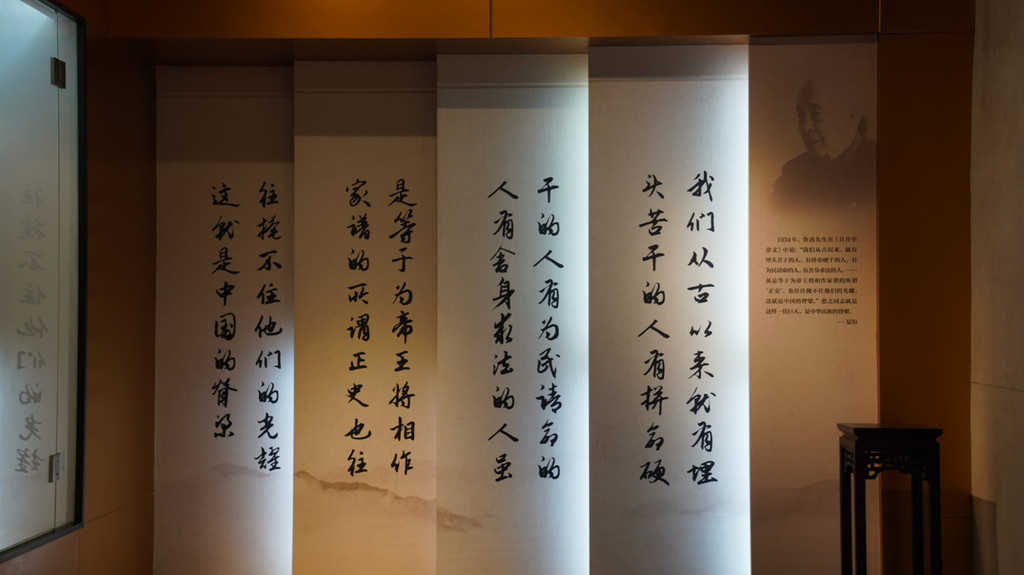 1934年，鲁迅先生在《且介亭
杂文》中说：“我们从古以来，就有
埋头苦干的人，有拼命硬干的人，有
为民请命的人，有舍身求法的人，……
虽是等于为帝王将相作家谱的所谓
“正史”，也往往掩不住他们的光耀，
这就是中国的脊梁。”愈之同志就是
这样一位巨人，是中华民族的脊梁。
——夏衍
我们从古以来就有埋
头苦干的人有拼命硬
干的人有为民请命的
人有舍身求法的人虽
是等于为帝王将相作
家谱的所谓正史也往
往掩不住他们的光耀
这就是中国的脊梁